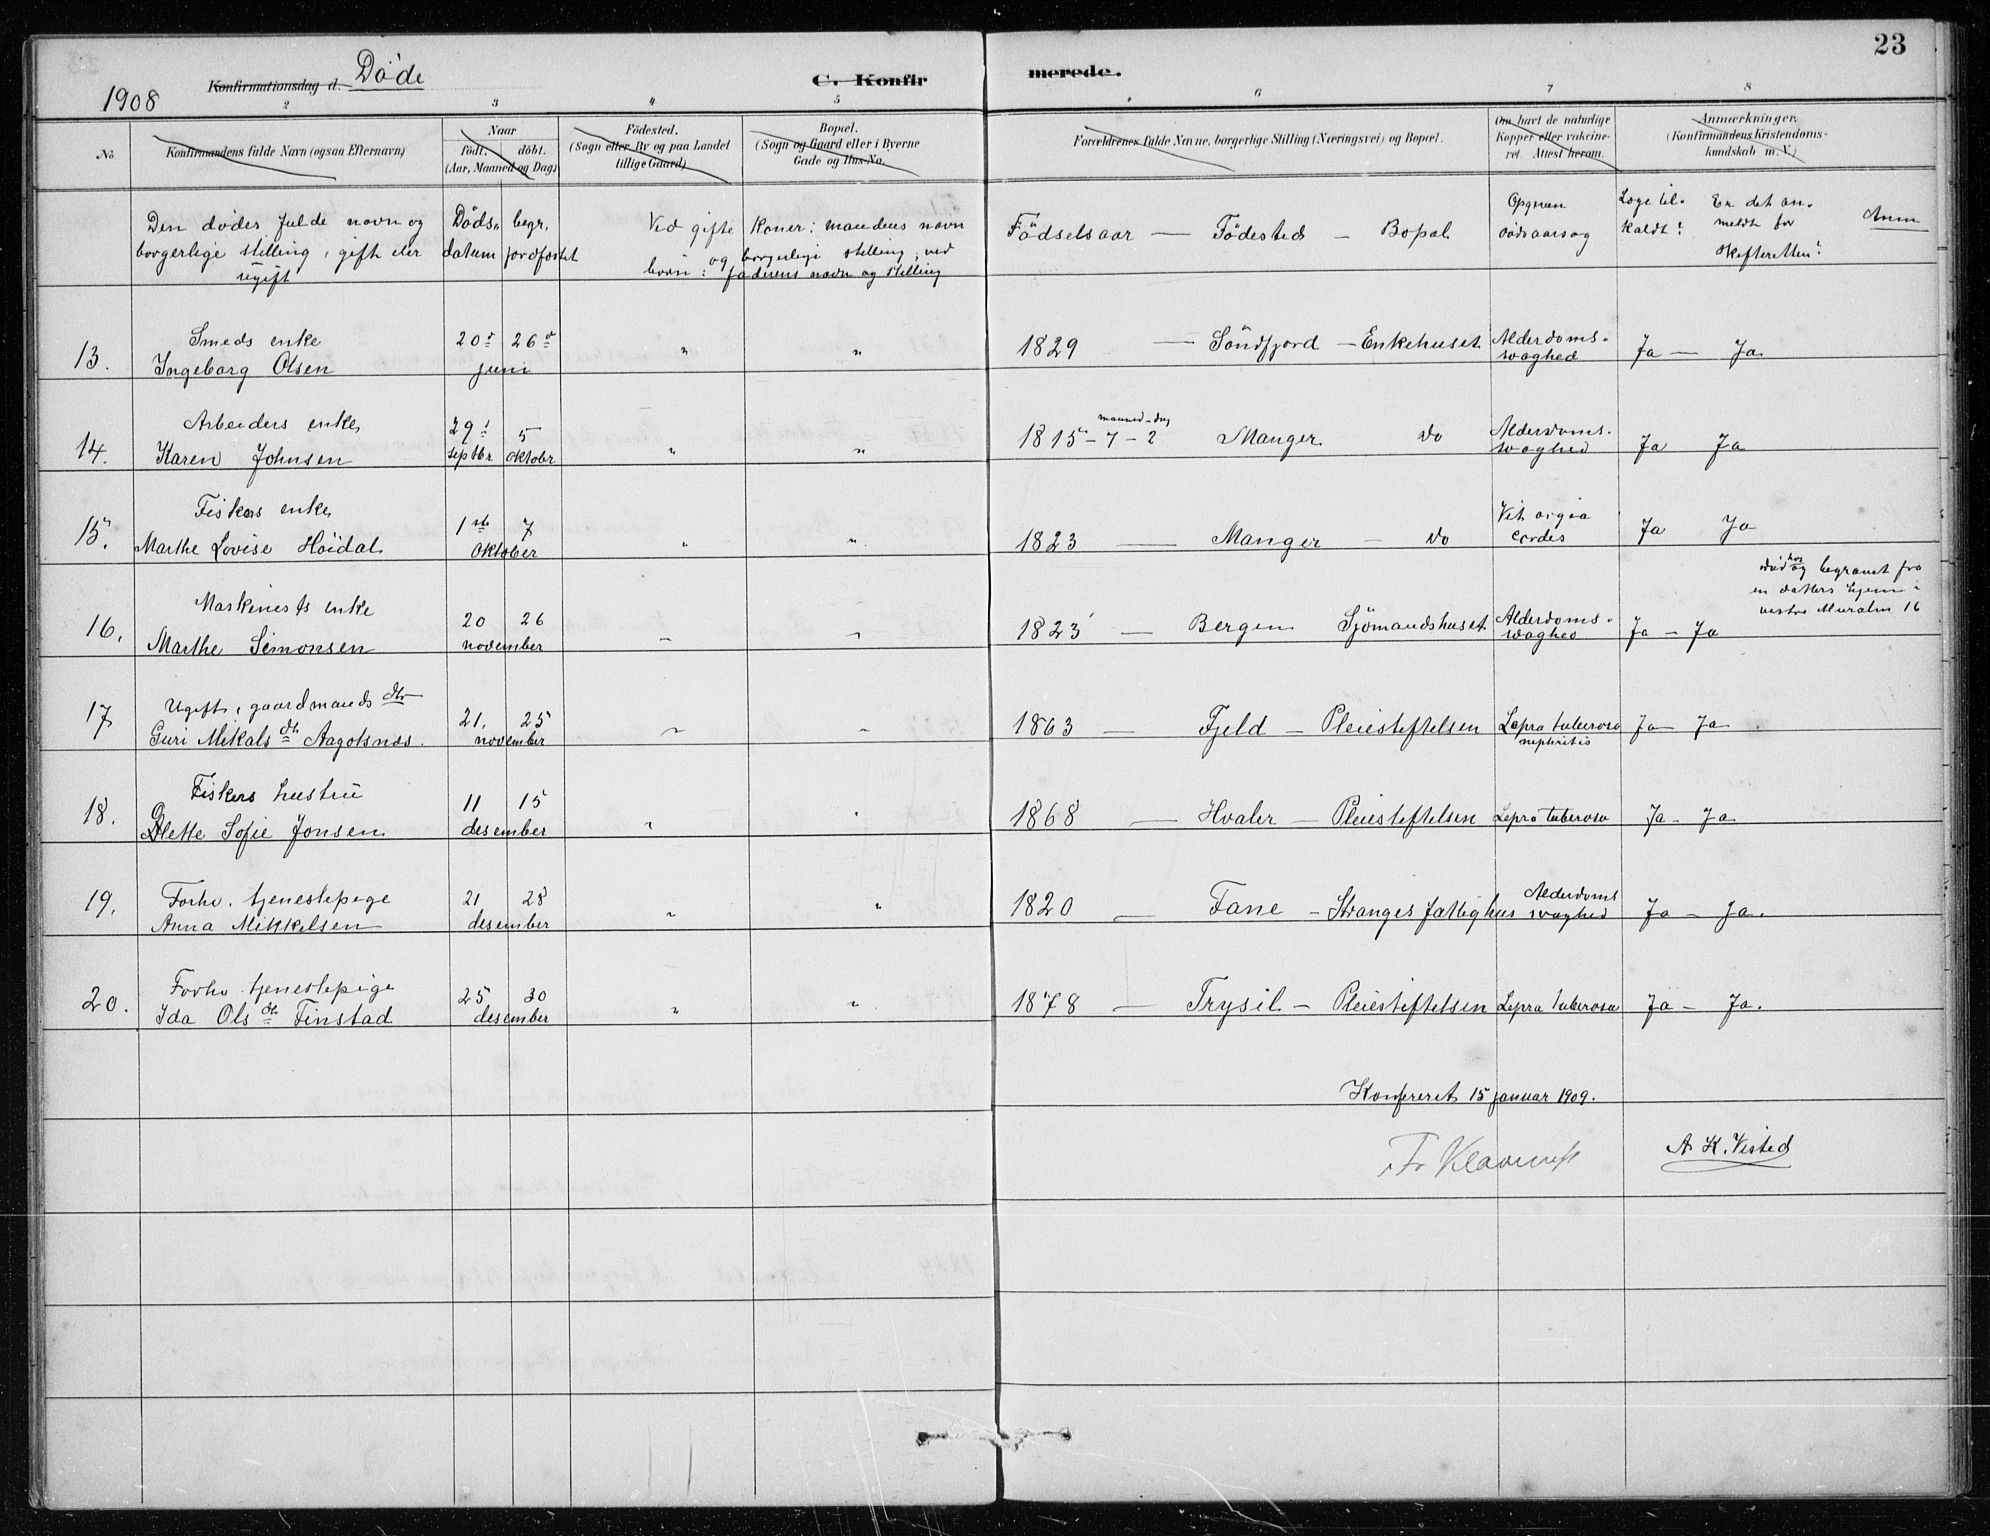 23
Konfirmationsdag d. Døde
C. Konfirmerede.
1908
2 3 4 5 6 7 8
No
Konfirmandens fulde Navn (ogsaa Efternavn)
Naar
født. døbt.
(Aar, Maaned og Dag)
Fødested.
(Sogn eller By og paa Landet
tillige Gaard)
Bopæl.
(Sogn og Gaard eller i Byerne
Gade og Hus-No.
Forældrenes fulde Navne, borgerlige Stilling (Næringsvei) og Bopæl.
Om havt de naturlige
Kopper eller vakcine-
ret. Attest herom.
Anmærkninger.
(Konfirmandens Kristendoms-
kundskab m. V.)
Den dødes fulde navn og
borgerlige stilling, gift eller
ugift
Døds- begr.
datum jordfæstet
Ved gifte koner: mandens navn
og borgerlige stilling, ved
børn: faderens navn og stilling
Fødselsaar — Fødested — Bopæl
Opgiven
dødsaarsag
Læge til-
kaldt?
Er det an-
meldt for
skifteretten?
Anm
13. Smeds enke
Ingeborg Olsen
20d 26d
juni
" "
1829 — Söndfjord — Enkehuset
Alderdoms-
svaghed
Ja — Ja
14. Arbeiders enke
Karen Johnsen
29d 5
septbr oktobr
" "
maaned - dag
1815 - 7 - 2 Manger do
Alderdoms-
svaghed
Ja Ja
15. Fiskers enke
Marthe Lovise Høidal
1ste 7
oktober
" "
1823 — Manger - do
Vit. orgia
cordis
Ja Ja
16. Maskinists enke
Marthe Simonsen
20 26
november
" "
1823 — Bergen Sjömandshuset
Alderdoms-
svaghed
Ja — Ja
død hos og begravet fra
en datters hjem i
vestre Muralm 16
17 Ugift, gaardmands dtr
Guri Mikals dtr Aagotsnes.
21. 25
november
" "
1863 — Fjeld — Pleiestiftelsen
Lepra tuberosa
nephritis
Ja — Ja
18. Fiskers hustru
Olette Sofie Jonsen
11 15
desember
" "
1868 — Hvaler — Pleiestiftelsen
Lepra tuberosa
Ja - Ja
19. Forhv. tjenestepige
Anna Mikkelsen
21 28
desember
" "
1820 — Fane — Stranges fattighus
Alderdoms
svaghed
Ja — Ja.
20. Forhv. tjenestepige
Ida Ols dtr. Finstad
25 30
desember
" "
1878 — Trysil — Pleiestiftelsen
Lepra tuberosa
Ja — Ja.
Konfereret 15 januar 1909.
A. K. Visted